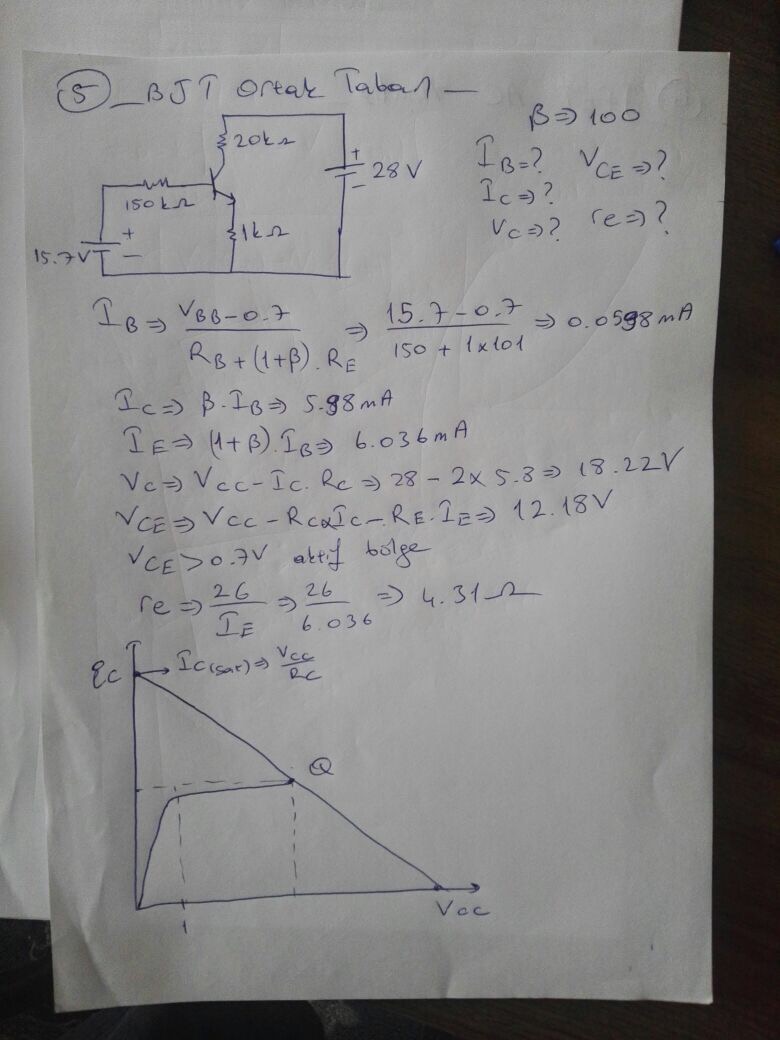 5 _ BJT Ortak Taban _
β => 100
20kΩ
28 V
150kΩ
1kΩ
15.7V
IB=? VCE=>?
IC=>?
VC=>? re=>?
IB => (VBB-0.7)/(RB+(1+β).RE) => (15.7-0.7)/(150+1x101) => 0.0598mA
IC=> β.IB=> 5.98mA
IE=> (1+β).IB=> 6.036mA
VC=> VCC-IC.RC=> 28-2x5.8=> 18.22V
VCE=> VCC-RCxIC-RE.IE=> 12.18V
VCE>0.7V aktif bölge
re=> 26/IE => 26/6.036 => 4.31Ω
IC(sat)=> VCC/RC
Q
1